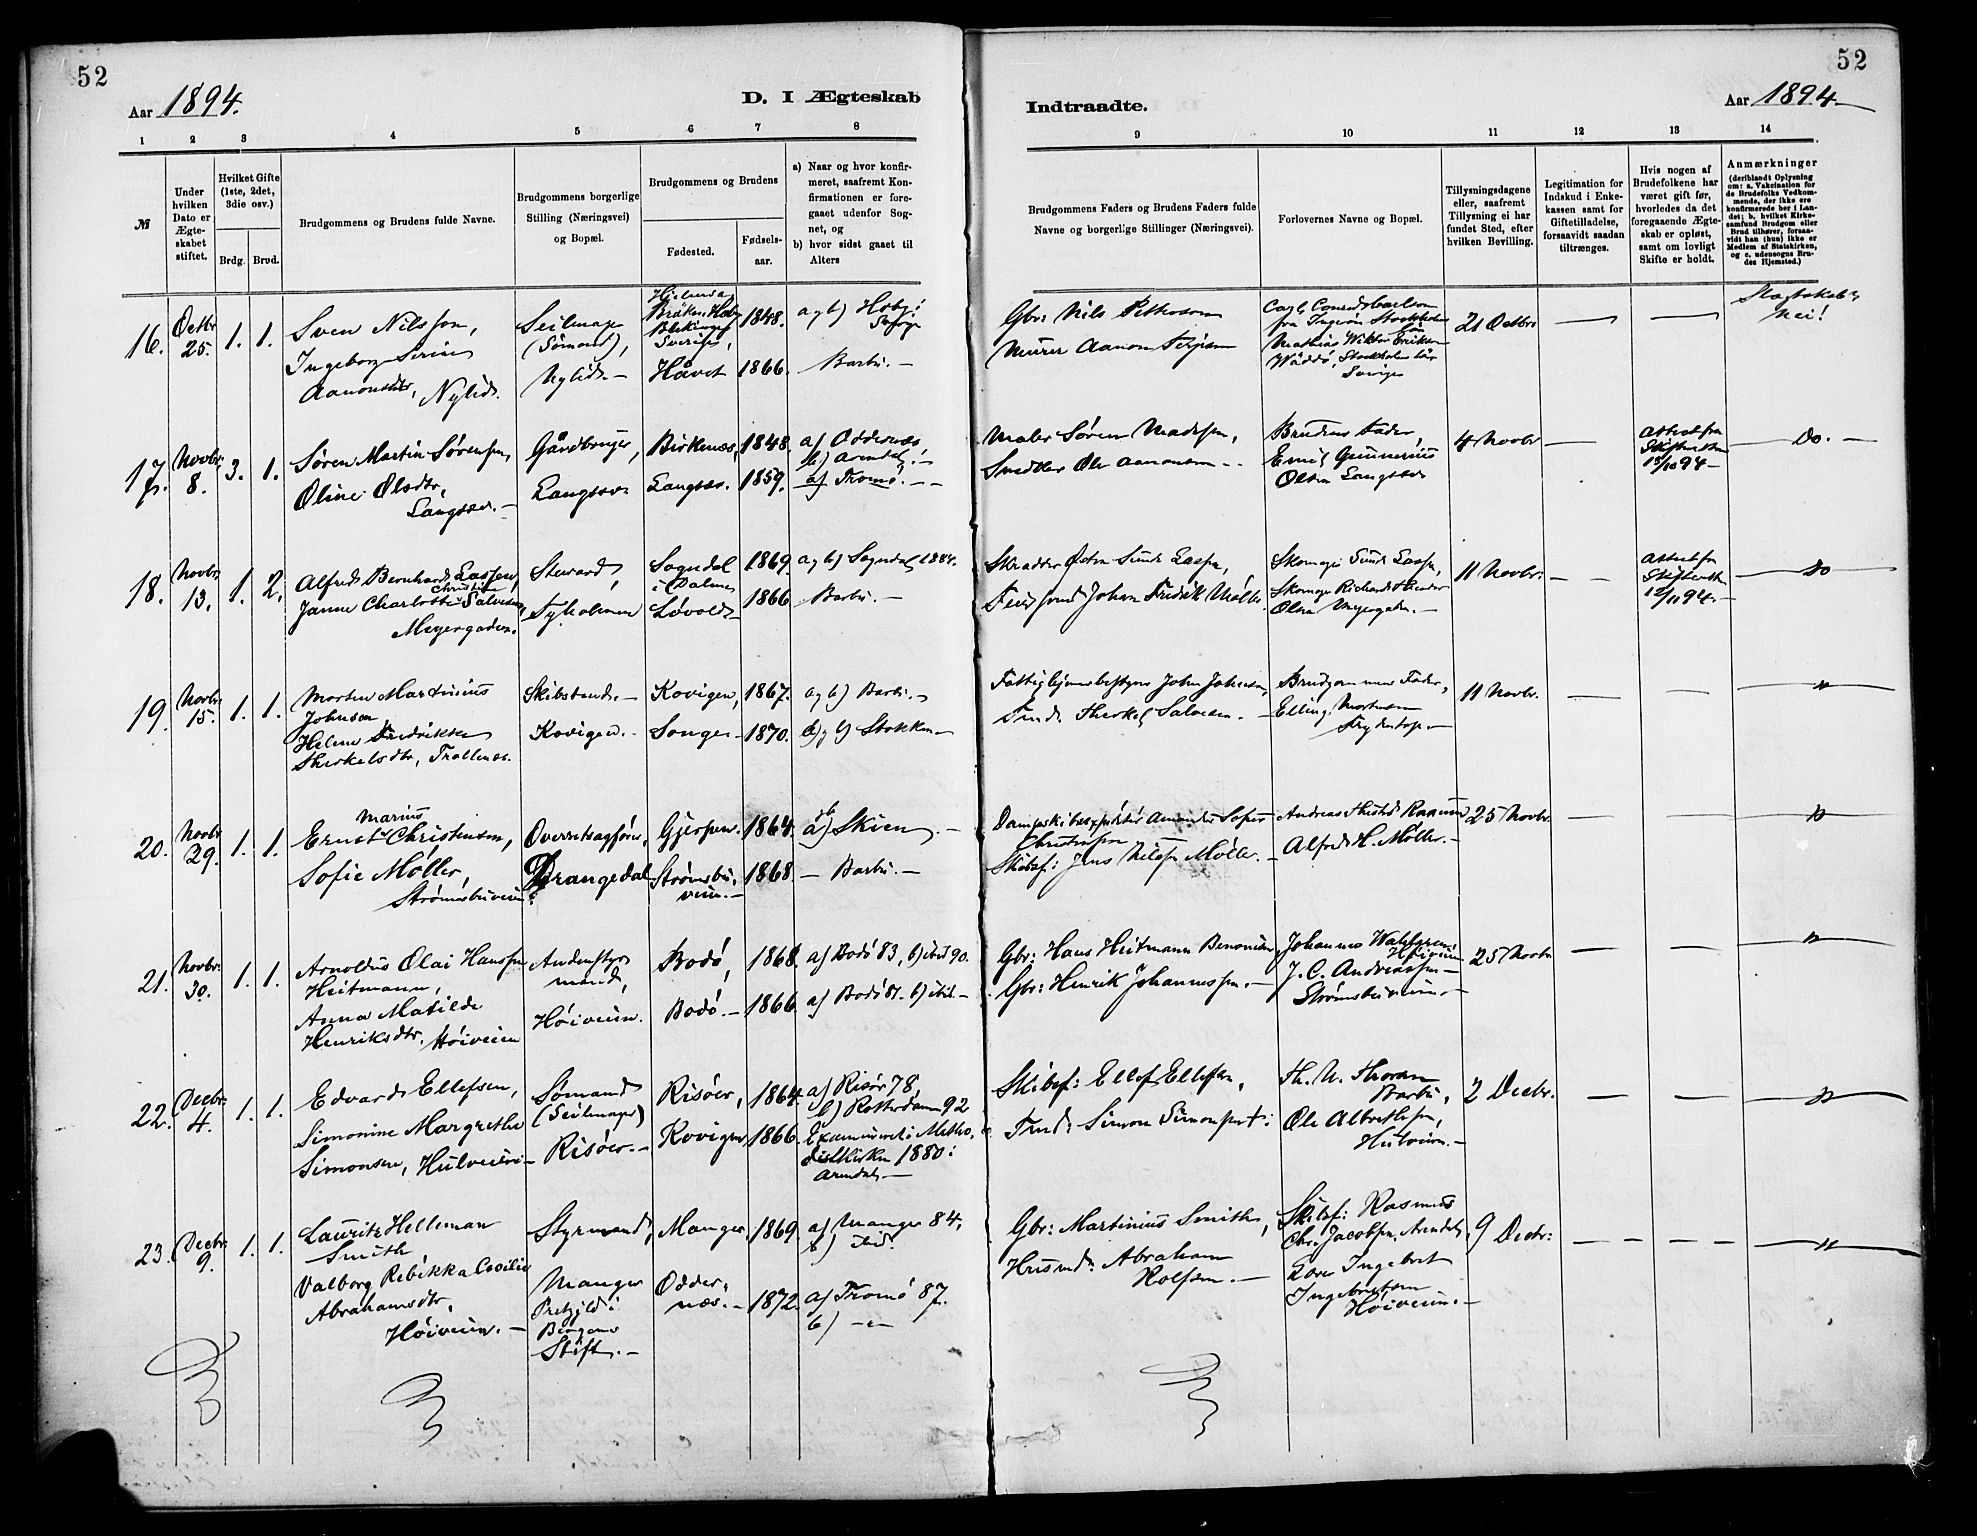 52
52
Aar 1894.
D. I Ægteskab
Indtraadte.
Aar 1894.
1 2 3 4 5 6 7 8 9 10 11 12 13 14
№
Under hvilken Dato er Ægteskabet stiftet.
Hvilket Gifte (1ste, 2det, 3die osv.)
Brdg. Brud.
Brudgommens og Brudens fulde Navne.
Brudgommens borgerlige Stilling (Næringsvei) og Bopæl.
Brudgommens og Brudens
Fødested.
Fødselsaar.
a) Naar og hvor konfirmeret, saafremt Konfirmationen er foregaaet udenfor Sognet, og
b) hvor sidst gaaet til Alters
Brudgommens Faders og Brudens Faders fulde Navne og borgerlige Stillinger (Næringsvei).
Forlovernes Navne og Bopæl.
Tillysningsdagene eller, saafremt Tillysning ei har fundet Sted, efter hvilken Bevilling.
Legitimation for Indskud i Enkekassen samt for Giftetilladelse, forsaavidt saadan tiltrænges.
Hvis nogen af Brudefolkene har været gift før, hvorledes da det foregaaende Ægteskab er opløst, samt om lovligt Skifte er holdt.
Anmærkninger
(deriblandt Oplysning om: a. Vakcination for de Brudefolks Vedkommende, der ikke ere konfirmerede her i Landet; b. hvilket Kirkesamfund Brudgom eller Brud tilhører, forsaavidt han (hun) ikke er Medlem af Statskirken, og c. udensogns Brudes Hjemsted.)
16. Octbr. 25. 1. 1.
Sven Nilsson,
Ingeborg Serine
Aanonsdtr, Nylid.
Seilmager
(Sømand),
Nylid. —
Sverige,
Haavet
1848.
1866.
a og b) Hoby i Sverge
Barbu. —
Gbr: Nils Petterson
Murer Aanon Terjesen
Mathias Wiktor Erikson
Wäddö, Stockholms län
Sverige
21 Octbr:
— —
nei!
17. Novbr. 8. 3. 1.
Søren Martin Sørensen,
Oline Olsdtr,
Langsæ. —
Gårdbruger,
Langsæ.
Birkenæs,
Langsæ.
1848.
1859.
a) Oddernæs
b) Arendal. —
a) Tromø. — —
Maler Søren Madsen,
Smed Ole Aanonsen —
Brudens Fader,
Emil Gunnerius
Olsen Langsæ
4 Novbr —
Attest fra
Skifteretten
18/10 94 —
— Do. —
18. Novbr. 13. 1. 2.
Alfred Bernhard Lassen,
Janna Charlotte Christine Salvesen,
Meyergaden.
Steward,
Tyholmen
Sogndal
i Dalene
Løvold —
1869.
1866
a og b) Sogndal 1884.
Barbu. —
Skræder Peder Sund Lassen,
Feier Johan Fredrik Møller
Skomager Sund Lassen,
Skomager Richard
Olsen Meyergaden. —
11 Novbr: — —
Attest fra
Skifteretten
12/11 94. —
— Do —
19. Novbr. 15. 1. 1.
Morten Martinius
Johnsen
Helene Fredrikke
Therkelsdtr, Trollnæs.
Skibstømd. —
Kovigen. —
Kovigen,
Songe —
1867.
1870.
a og b) Barbu. —
a og b) Stokken —
Fattighjemsbestyrer John Johnsen,
Tmd: Therkel Salvesen. —
Brudgommens Fader,
Elling Mortensen
Frydentop. —
11 Novbr. — —
— " —
20. Novbr. 29. 1. 1.
Ernst Marius Christensen,
Sofie Møller,
Strømsbuveien
Overretssagfører,
Drangedal
Gjerpen.
Strømsbuveien. —
1864.
1868.
a) b) Skien. —
— Barbu. —
Christensen
Skibsf: Jens Nilsen Møller. —
Alfred H. Møller. —
25 Novbr. — —
— " —
21. Novbr. 30. 1. 1.
Arnoldus Olai Hanssen
Heitmann,
Anna Matilde
Henriksdtr, Høiveien
Andenstyrmand,
Høiveien.
Bodø,
Bodø. —
1868.
1866.
a) Bodø 83, b) ibid 90.
a) Bodø 81. b) ibid. —
Gbr: Hans Heitmann Benonisen,
Gbr: Henrik Johannessen. —
Johannes Wahlgren, Høiveien
J. C. Andreassen —
Strømsbuveien. —
25 Novbr
— — "
22. Decbr: 4. 1. 1.
Edvard Ellefsen,
Simonine Margrethe
Simonsen, Hulveien —
Sømand
(Seilmager)
Risøer. —
Risøer,
Kovigen,
1864.
1866.
a) Risør 78,
b) Rotterdam 92
Examineret i Methodistkirken 1880 i
Arendal. —
Skibsf: Ellef Ellefsen,
Tmd: Simon Simonsen †:
Th. N. Thorsen
Barbu,
Ole Albrethsen,
Hulveien. —
2 Decbr.
— — "
23. Decbr: 9. 1. 1.
Lauritz Helleman
Smith
Valborg Rebekka Cecilie
Abrahamsdtr,
Høiveien. —
Styrmand,
Manger
Prstgjld i
Bergens
Stift. —
Manger,
Oddernæs. —
1869.
1872.
a) Manger 84,
b) ibid.
a) Tromø 87.
b) — " —
Gbr: Martinius Smith,
Husmd: Abraham
Rolfsen. —
Skibsf: Rasmus
Chr. Jacobsen, Arendal,
Lods Ingebret
Ingebretsen
Høiveien. —
9 Decbr:
— — — "